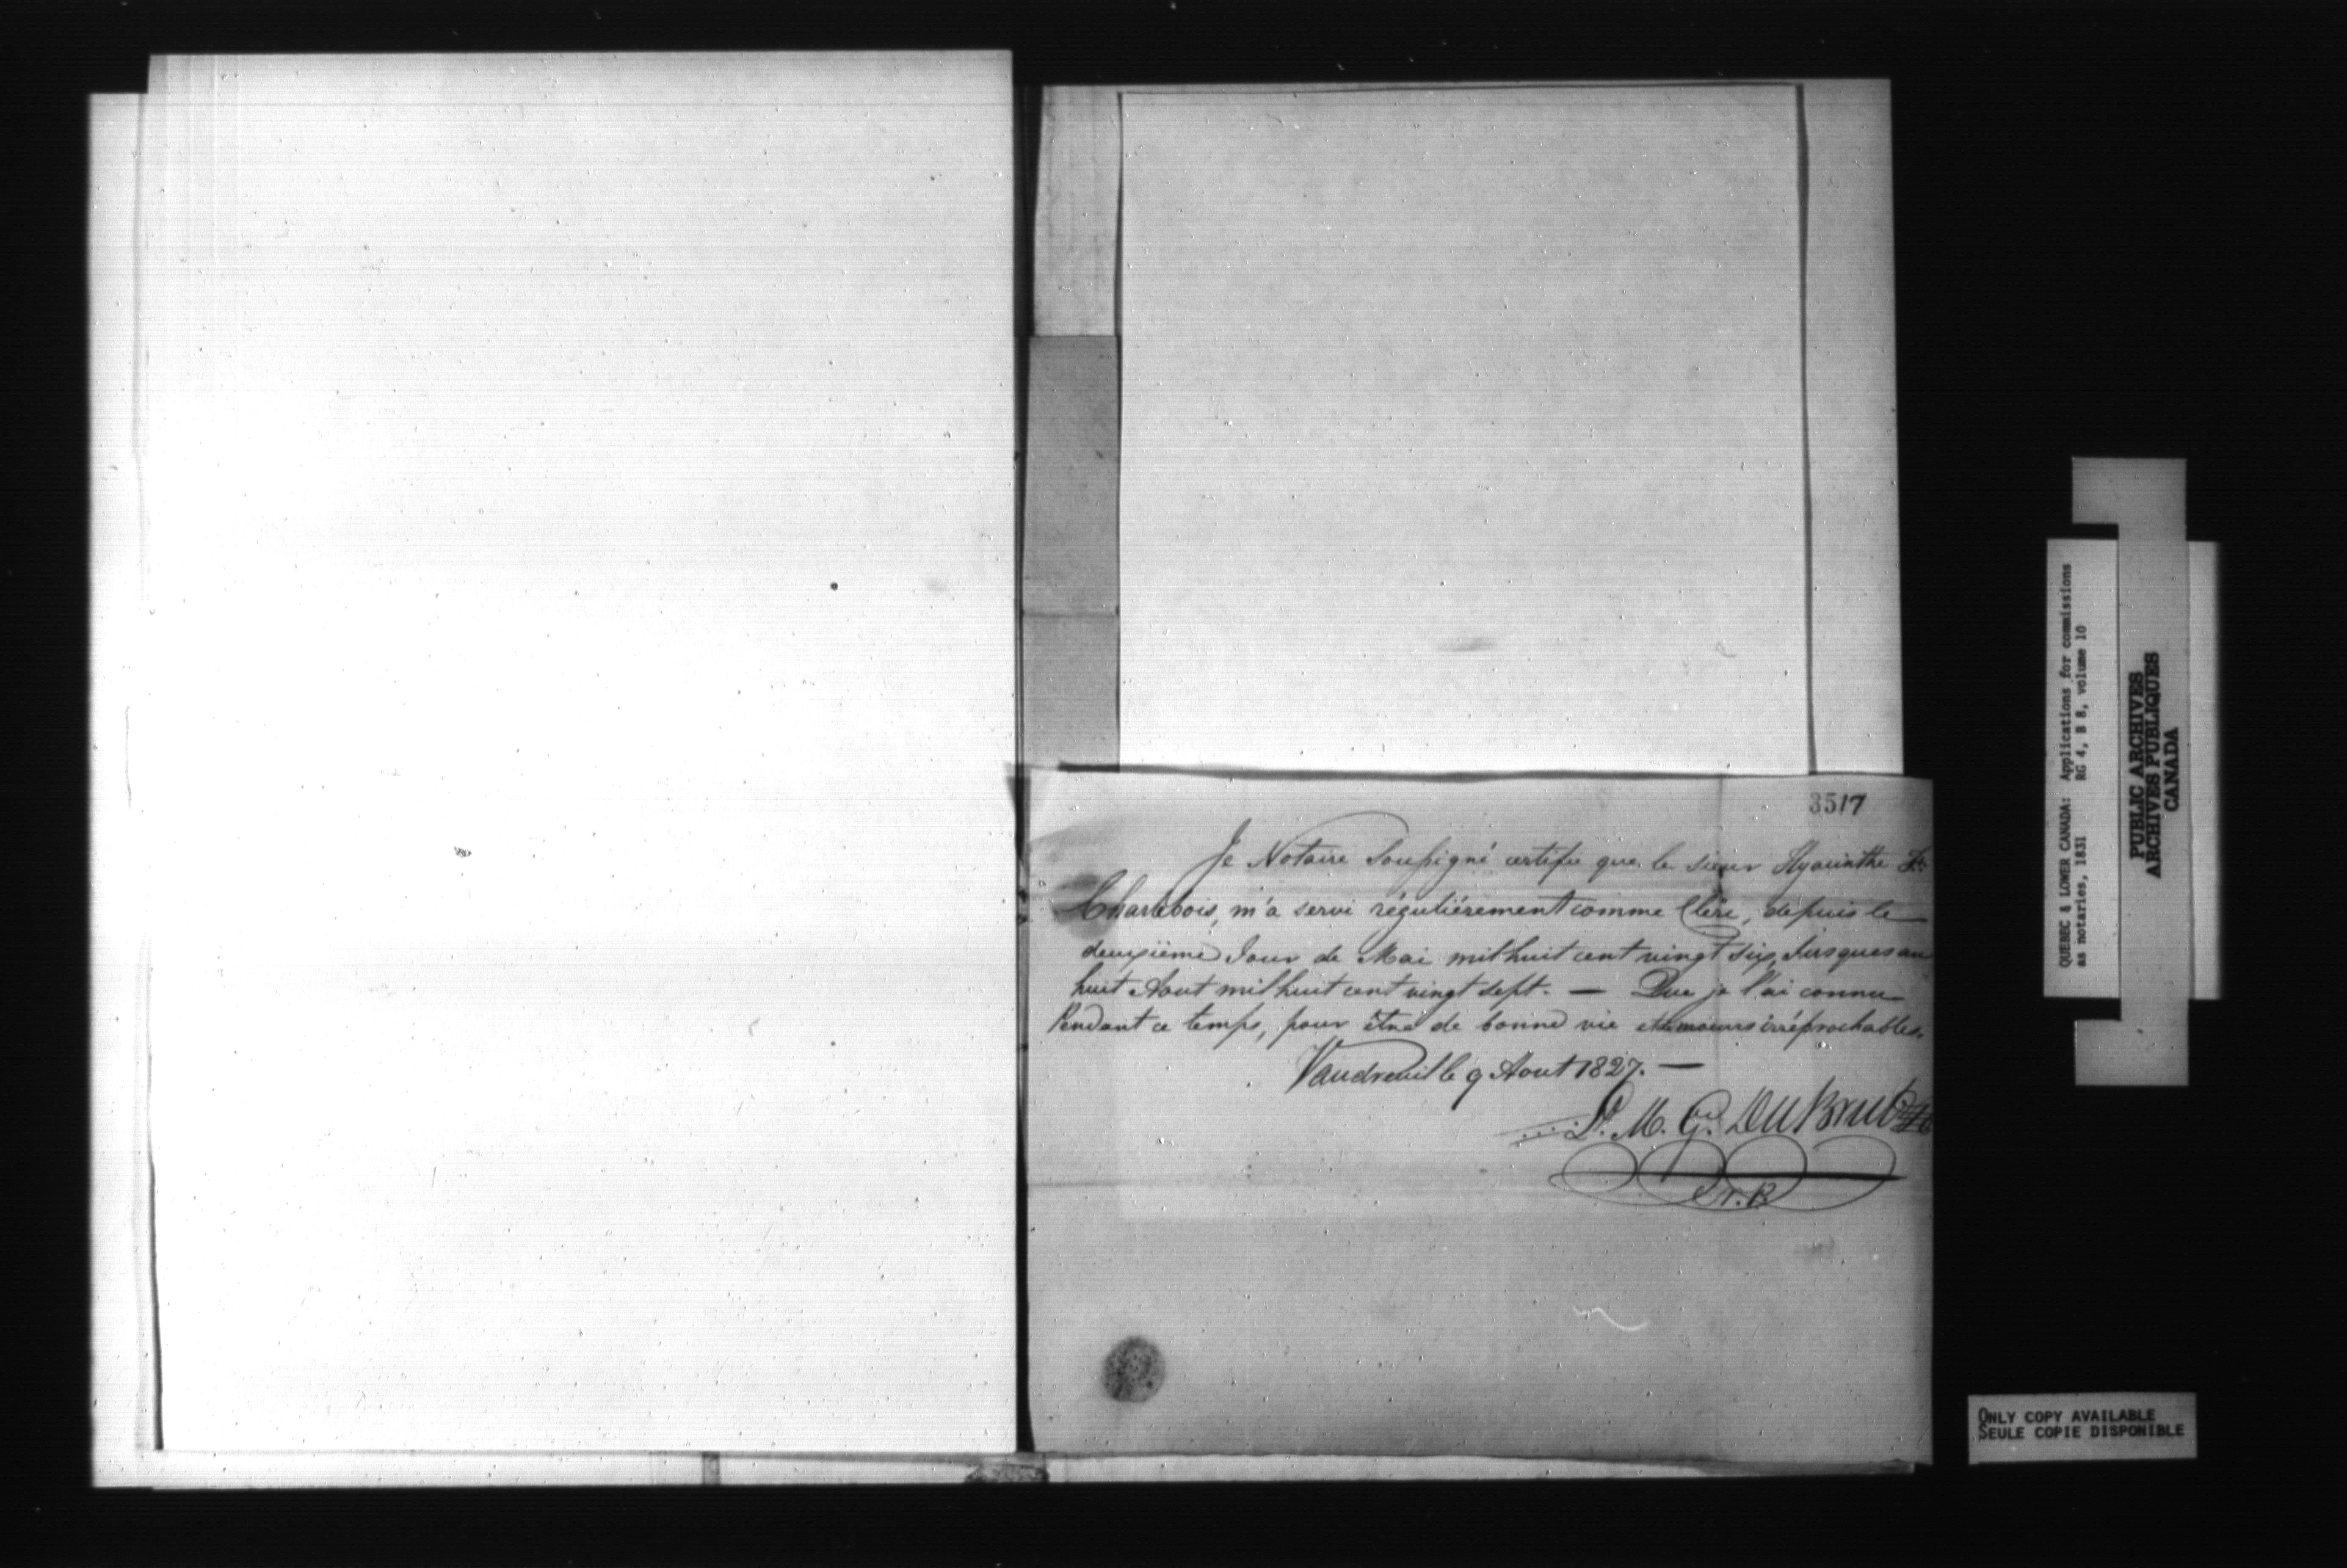 3517
Je Notaire Soussigné certifie que le sieur Hyacinthe Fs.
Charlebois, m'a servi régulièrement comme Clerc, depuis le
deuxième Jour de Mai mil huit cent vingt six, Jusques au
huit Aout mil huit cent vingt sept. — Que je l'ai connu
Pendant ce temps, pour être de bonne vie et de moeurs irréprochables.
Vaudreuil le 9 Aout 1827. —
N.P.
QUEBEC & LOWER CANADA: Applications for commissions
as notaries, 1831 RG 4, B 8, volume 10
PUBLIC ARCHIVES
ARCHIVES PUBLIQUES
CANADA
ONLY COPY AVAILABLE
SEULE COPIE DISPONIBLE